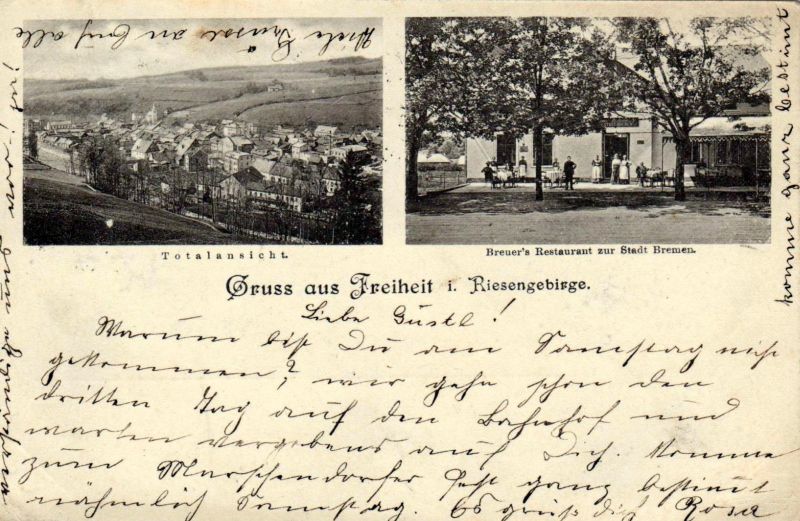 Viele Grüsse an Euch alle
Totalansicht.
Breuer's Restaurant zur Stadt Bremen.
Gruss aus Freiheit i. Riesengebirge.
Liebe Gustl!
Warum bist Du am Samstag nicht
gekommen? wir gehn schon den
dritten Tag auf den Bahnhof und
warten vergebens auf Dich. Komme
zum Marschendorfer Fest ganz bestimt
nähmlich Samstag. Es grüßt dich Rosa
verständige uns vor!
komme ganz bestimt